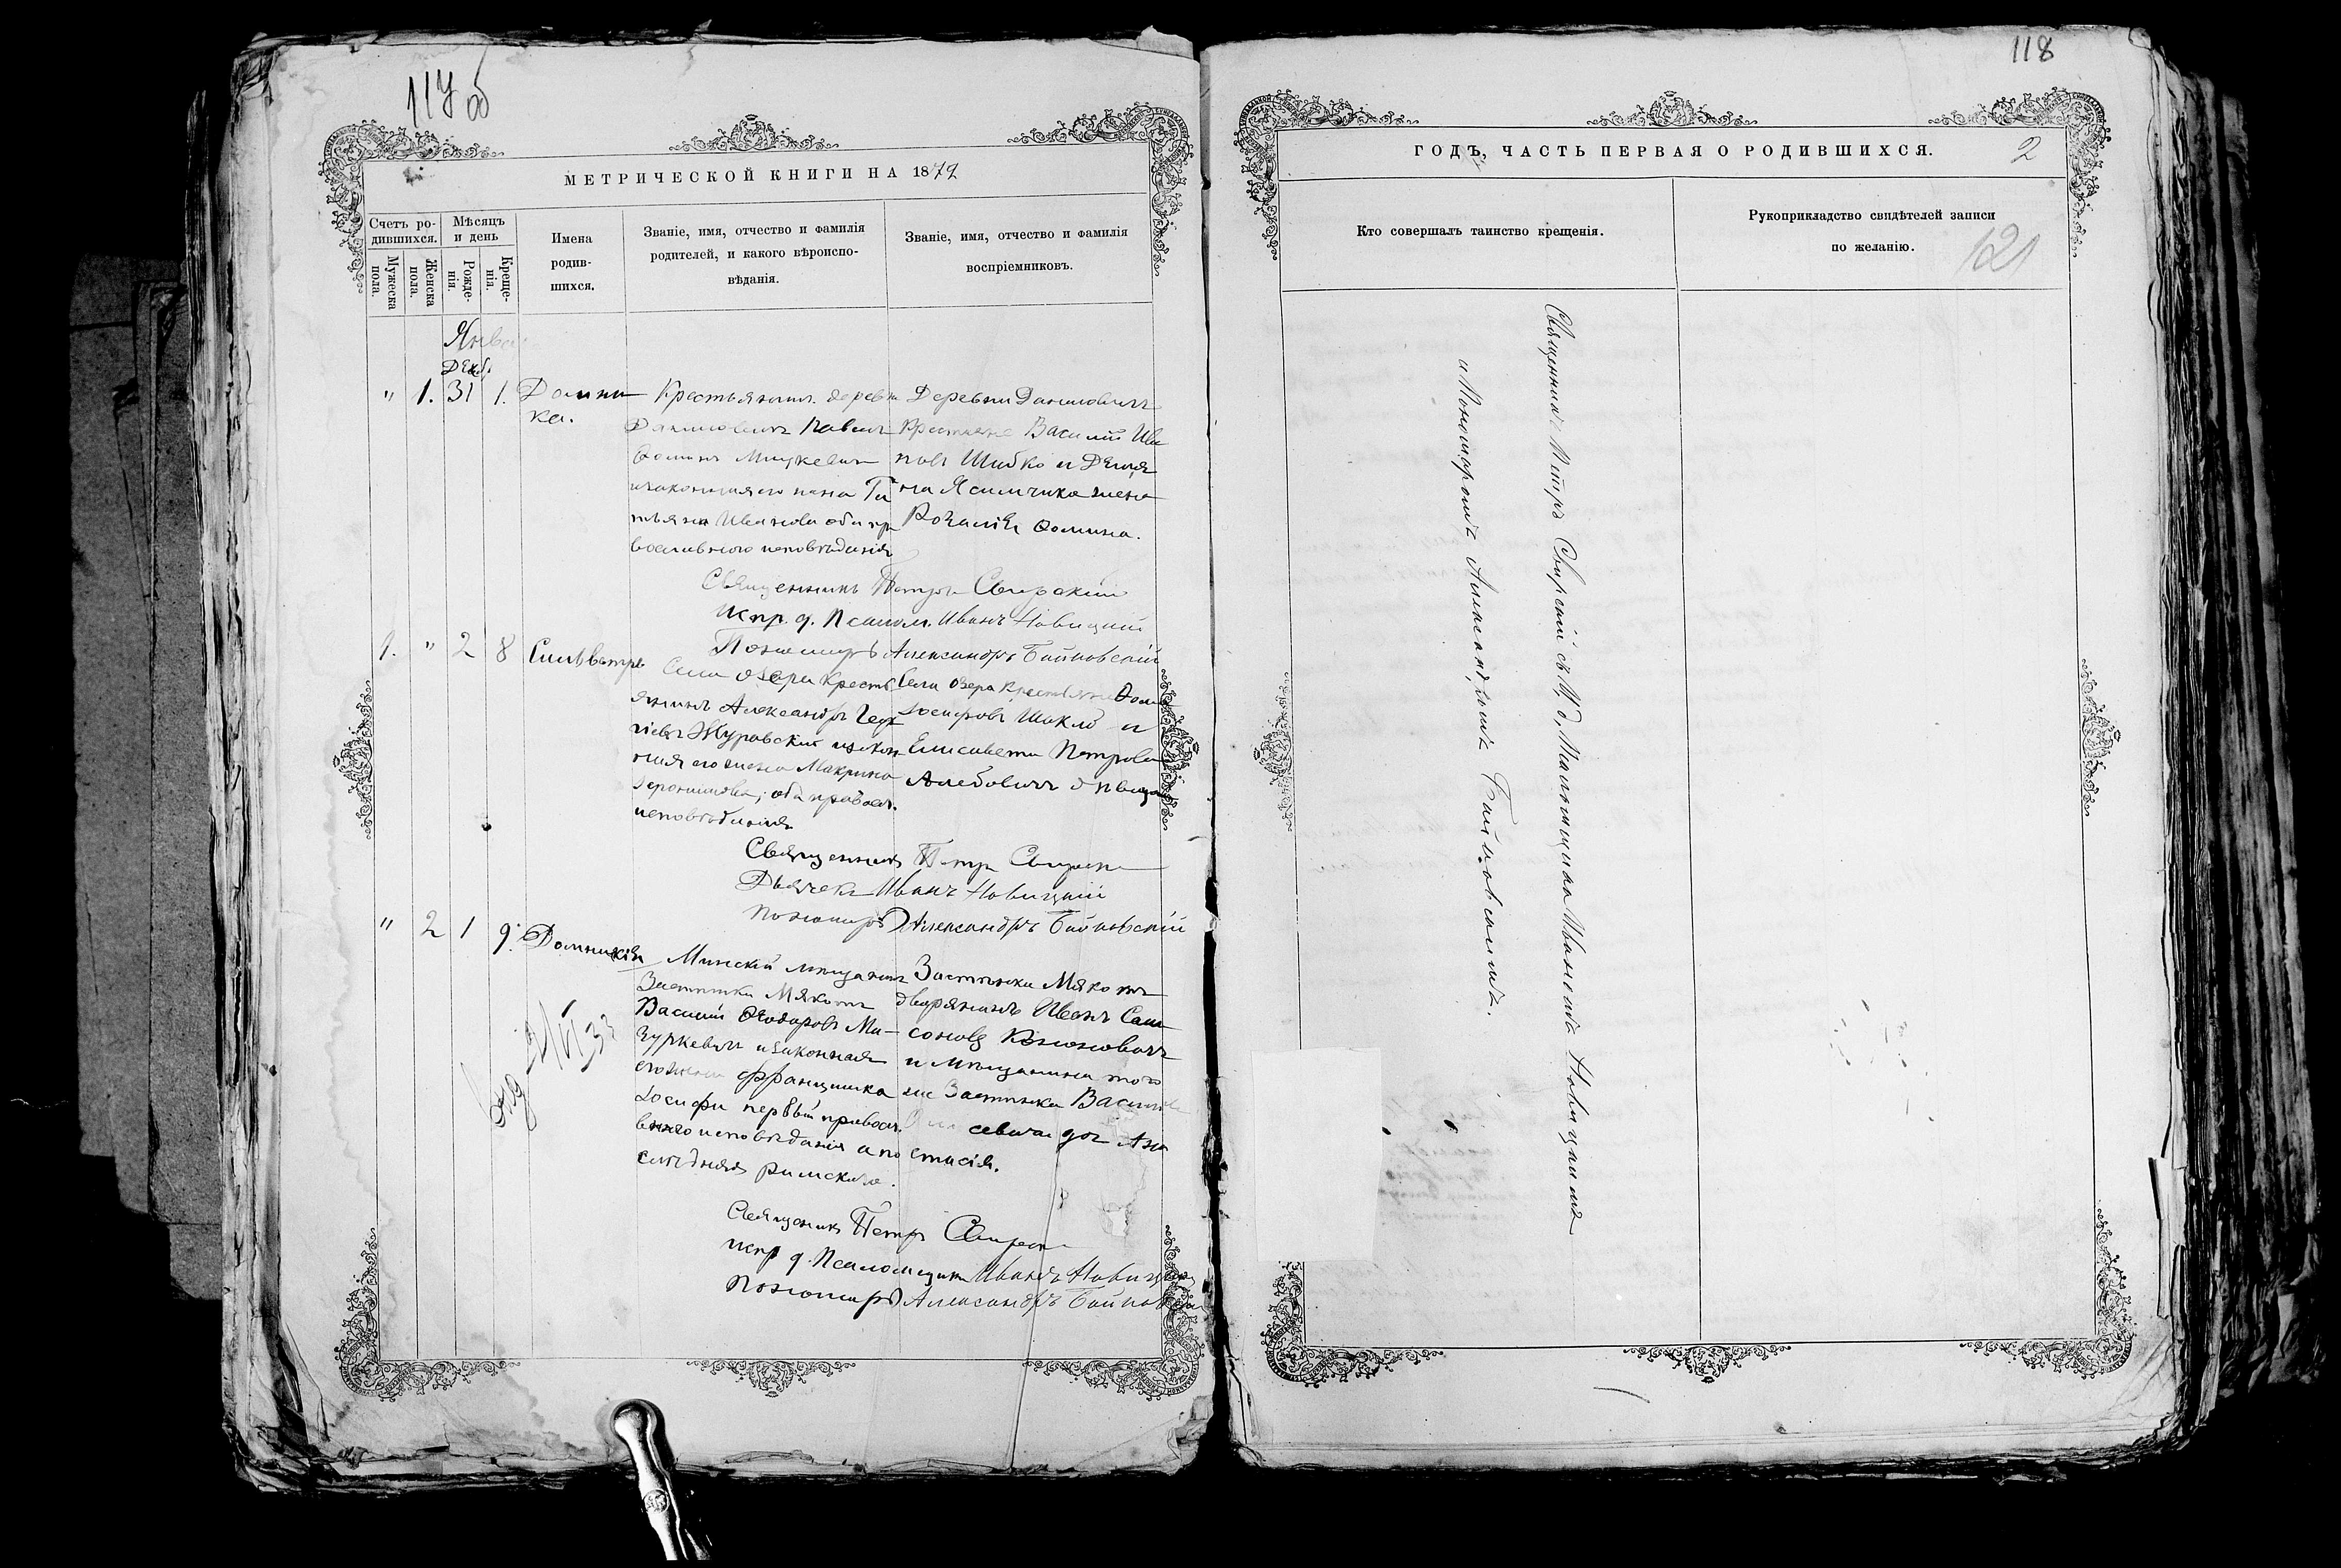 117 об
МЕТРИЧЕСКОЙ КНИГИ НА 1872
Счетъ ро-
дившихся.
Мѣсяцъ
и день
Мужеска
пола.
Женска
пола.
Рожде-
нія.
Креще-
нія.
Имена
родив-
шихся.
Званіе, имя, отчество и фамилія
родителей, и какого вѣроиспо-
вѣданія.
Званіе, имя, отчество и фамилія
воспріемниковъ.
Янва
Декаб
" 1. 31 1.
Домни
ка.
Крестьянинъ деревни
Даниловичъ Павелъ
Ѳоминъ Мицкевичъ
изаконная его жена Та
тьяна Иванова оба пра
вославнаго исповѣданія
Деревни Даниловичъ
Крестьяне Василій Ива
новъ Шибко и Демья
на Ясимчика жена
Розалія Ѳомина.
Священникъ Петръ Свирскій
Испр. д. Псалом. Иванъ Новицкій
Пономарь Александръ Бойковскій
1. " 2 8
Сильвестръ
Села Озера Кресть
янинъ Александръ Геор
гіевъ Журавскій изакон
ная его жена Макрина
Іеронимова, оба правосл.
исповѣданія
Села Озера Крестьяне Ѳома
Іосифовъ Шакло и
Елисавета Петрова
Священникъ Петръ Свирскій
Дьячекъ Иванъ Новицкій
Пономарь Александръ Бойковскій
" 2 1 9.
Домникія
Минскій мѣщанинъ
Застѣнка Мякотъ
Василій Ѳеодоровъ Ма-
зуркевичъ изаконная
его жена Францишка
Іосифа первый правосл.
внаго исповѣданія а по
слѣдняя римскаго.
Застѣнка Мякотъ
дворянинъ Иванъ Сам
соновъ Кононовичъ
и мѣщанина того
же Застѣнка Василія
севича доч Ана
стасія.
Священникъ Петръ Свирскій
Испр д. Псаломщика Иванъ Новицкій
Пономарь Александръ Бойковскій
118
ГОДЪ, ЧАСТЬ ПЕРВАЯ О РОДИВШИХСЯ.
2
Кто совершалъ таинство крещенія.
Рукоприкладство свидѣтелей записи
по желанію.
121
Священникъ Петръ Свирскій съ И, д, Псаломщика Иваномъ Новицкимъ
и Пономаремъ Александромъ Бойковскимъ.